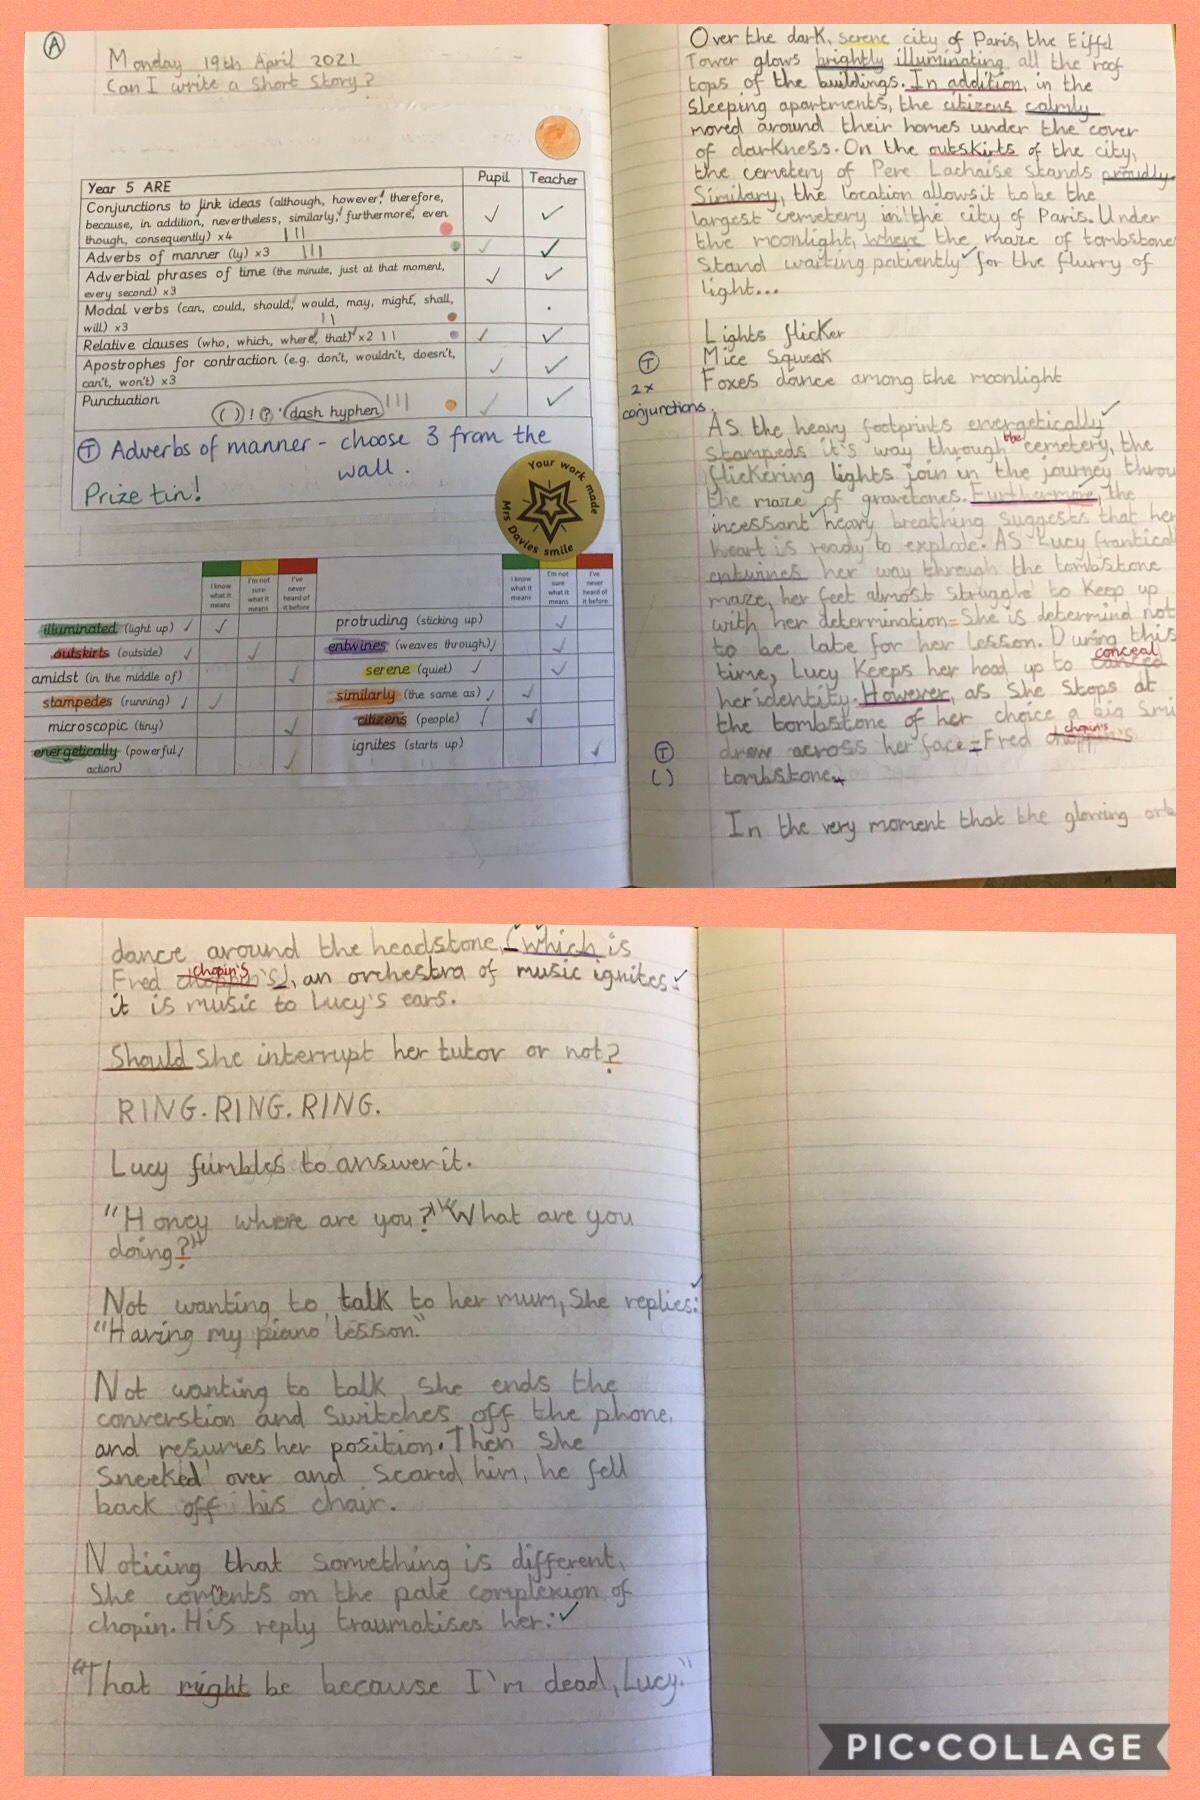 A
Monday 19th April 2021
Can I write a short story?
Year 5 ARE
Pupil
Teacher
Conjunctions to link ideas (although, however, therefore,
because, in addition, nevertheless, similarly, furthermore, even
though, consequently) x4
Adverbs of manner (ly) x3
Adverbial phrases of time (the minute, just at that moment,
every second) x3
Modal verbs (can, could, should, would, may, might, shall,
will) x3
Relative clauses (who, which, where, that) x2
Apostrophes for contraction (e.g. don't, wouldn't, doesn't,
can't, won't) x3
Punctuation
( ) ! ? ' dash hyphen
T Adverbs of manner - choose 3 from the
wall.
Prize tin!
Your work made
Mrs Davies smile
I know what it means
I'm not sure what it means
I've never heard of it before
I know what it means
I'm not sure what it means
I've never heard of it before
illuminated (light up)
protruding (sticking up)
outskirts (outside)
entwines (weaves through)
amidst (in the middle of)
serene (quiet)
stampedes (running)
similarly (the same as)
microscopic (tiny)
citizens (people)
energetically (powerful
action)
ignites (starts up)
Over the dark, serene city of Paris, the Eiffel
Tower glows brightly illuminating all the roof
tops of the buildings. In addition, in the
sleeping apartments, the citizens calmly
moved around their homes under the cover
of darkness. On the outskirts of the city,
the cemetery of Pere Lachaise stands proudly.
Similary, the location allows it to be the
largest cemetery in the city of Paris. Under
the moonlight, where the maze of tombstone
Stand waiting patiently for the flurry of
light...
Lights flicker
Mice Squeak
Foxes dance among the moonlight
T
2x
conjunctions.
As the heavy footprints energetically
stampeds it's way through the cemetery, the
flickering lights join in the journey throu
the maze of gravetones. Furthermore, the
incessant heavy breathing suggests that her
heart is ready to explode. As Lucy frantical
entwines her way through the tombstone
maze, her feet almost struggle to keep up
with her determination - She is determind not
to be late for her lesson. During this
time, Lucy keeps her hood up to conceal
her identity. However, as she stops at
the tombstone of her choice a big smi
drew across her face - Fred chopin's
tombstone.
T
( )
In the very moment that the glowing orb
dance around the headstone, (which is
Fred chopin's), an orchestra of music ignites:
it is music to Lucy's ears.
Should she interrupt her tutor or not?
RING. RING. RING.
Lucy fumbles to answer it.
"Honey where are you?" "What are you
doing?"
Not wanting to talk to her mum, She replies:
"Having my piano lesson."
Not wanting to talk, she ends the
converstion and switches off the phone,
and resumes her position. Then She
sneeked over and scared him, he fell
back off his chair.
Noticing that something is different,
She coments on the pale complexion of
chopin. His reply traumatises her:
"That might be because I'm dead, Lucy."
PIC•COLLAGE